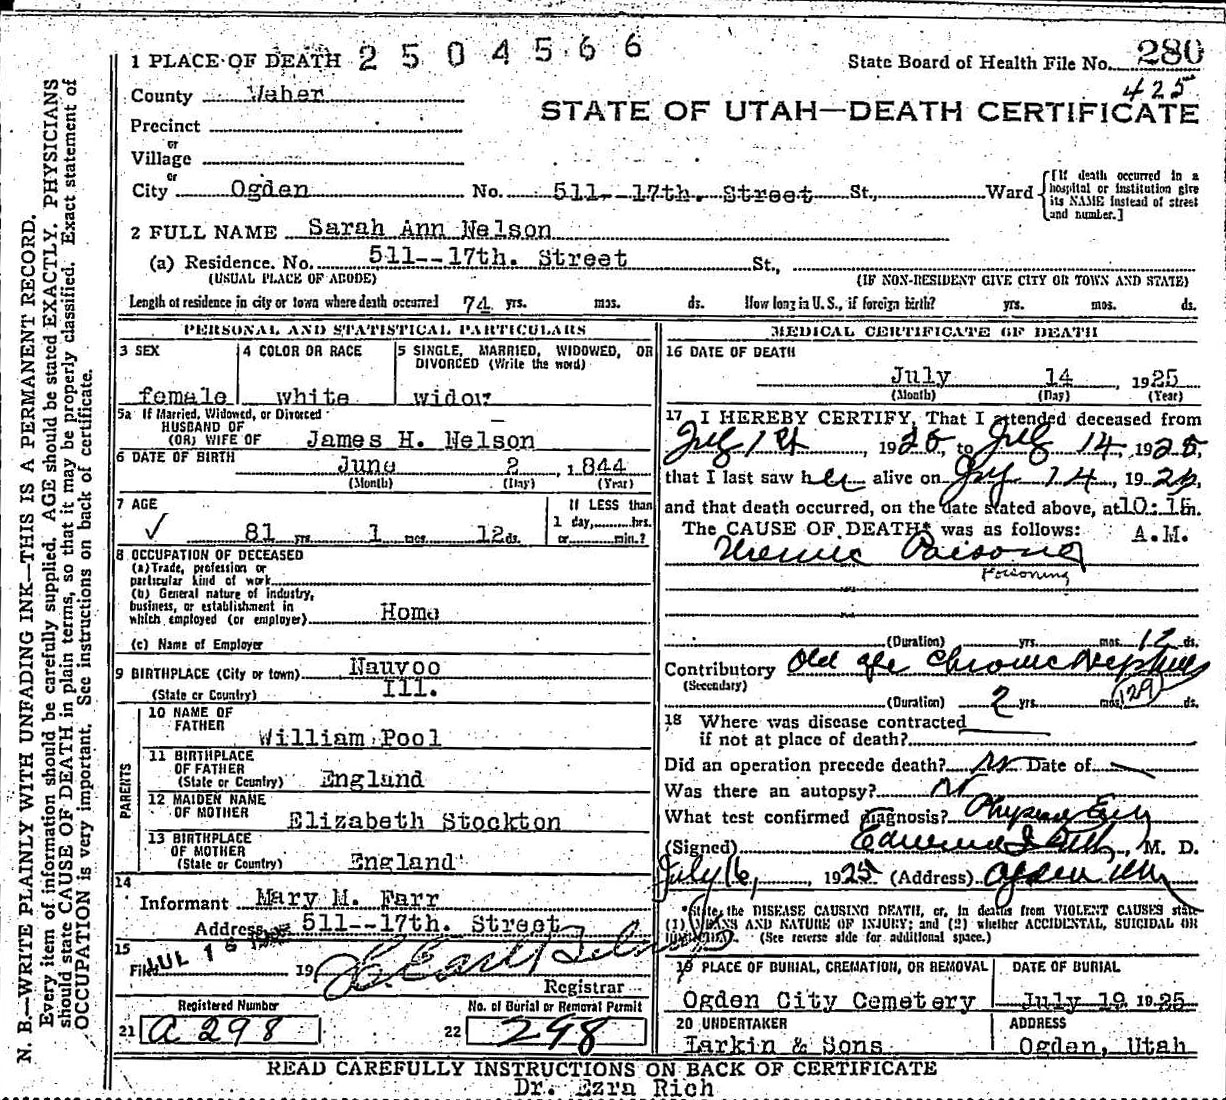 1 PLACE OF DEATH 2504566
State Board of Health File No. 280
425
County Weber
STATE OF UTAH—DEATH CERTIFICATE
Precinct
or
Village
or
City Ogden No. 511--17th. Street St., Ward
[If death occurred in a
hospital or institution give
its NAME instead of street
and number.]
2 FULL NAME Sarah Ann Nelson
(a) Residence. No. 511--17th. Street St.,
(USUAL PLACE OF ABODE) (IF NON-RESIDENT GIVE CITY OR TOWN AND STATE)
Length of residence in city or town where death occurred 74 yrs. mos. ds. How long in U. S., if foreign birth? yrs. mos. ds.
PERSONAL AND STATISTICAL PARTICULARS
3 SEX 4 COLOR OR RACE 5 SINGLE, MARRIED, WIDOWED, OR
DIVORCED (Write the word)
female white widow
5a If Married, Widowed, or Divorced
HUSBAND OF
(OR) WIFE OF James H. Nelson
6 DATE OF BIRTH June 2, 1844
(Month) (Day) (Year)
7 AGE If LESS than
81 yrs. 1 mos. 12 ds. 1 day, hrs.
or min.?
8 OCCUPATION OF DECEASED
(a) Trade, profession or
particular kind of work
(b) General nature of industry,
business, or establishment in
which employed (or employer) Home
(c) Name of Employer
9 BIRTHPLACE (City or town) Nauvoo
(State or Country) Ill.
PARENTS
10 NAME OF
FATHER William Pool
11 BIRTHPLACE
OF FATHER
(State or Country) England
12 MAIDEN NAME
OF MOTHER Elizabeth Stockton
13 BIRTHPLACE
OF MOTHER
(State or Country) England
14
Informant Mary M. Farr
Address 511--17th. Street
15
Filed JUL 16 1925 19
Registrar
Registered Number No. of Burial or Removal Permit
21 A 298 22 298
MEDICAL CERTIFICATE OF DEATH
16 DATE OF DEATH
July 14, 1925
(Month) (Day) (Year)
17 I HEREBY CERTIFY, That I attended deceased from
July 1st, 1925, to July 14, 1925,
that I last saw her alive on July 14, 1925,
and that death occurred, on the date stated above, at 10:15m.
The CAUSE OF DEATH* was as follows: A.M.
Uremic Poisong
Poisoning
(Duration) yrs. mos. 12 ds.
Contributory Old age Chronic Nephritis
(Secondary)
(Duration) 2 yrs. mos. 129 ds.
18 Where was disease contracted
if not at place of death?
Did an operation precede death? no Date of
Was there an autopsy? no
What test confirmed diagnosis?
(Signed) M. D.
July 16, 1925 (Address) Ogden Utah
*State the DISEASE CAUSING DEATH, or, in deaths from VIOLENT CAUSES state
(1) MEANS AND NATURE OF INJURY; and (2) whether ACCIDENTAL, SUICIDAL OR
HOMICIDAL. (See reverse side for additional space.)
19 PLACE OF BURIAL, CREMATION, OR REMOVAL DATE OF BURIAL
Ogden City Cemetery July 19 1925
20 UNDERTAKER ADDRESS
Larkin & Sons Ogden, Utah
READ CAREFULLY INSTRUCTIONS ON BACK OF CERTIFICATE
Dr. Ezra Rich
N. B.—WRITE PLAINLY WITH UNFADING INK—THIS IS A PERMANENT RECORD.
Every item of information should be carefully supplied. AGE should be stated EXACTLY. PHYSICIANS
should state CAUSE OF DEATH in plain terms, so that it may be properly classified. Exact statement of
OCCUPATION is very important. See instructions on back of certificate.